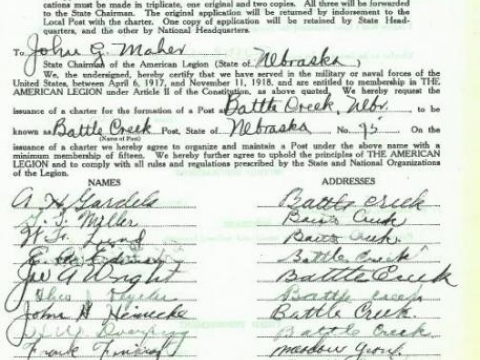 cations must be made in triplicate, one original and two copies. All three will be forwarded
to the State Chairman. The original application will be returned by indorsement to the
Local Post with the charter. One copy of application will be retained by State Head-
quarters, and the other by National Headquarters.
To John G. Maher
State Chairman of the American Legion (State of Nebraska )
We, the undersigned, hereby certify that we have served in the military or naval forces of the
United States, between April 6, 1917, and November 11, 1918, and are entitled to membership in THE
AMERICAN LEGION under Article II of the Constitution, as above quoted. We hereby request
issuance of a charter for the formation of a Post at Battle Creek, Nebr. to be
known as Battle Creek Post, State of Nebraska No. 75 On the
(Name of Post)
issuance of a charter we hereby agree to organize and maintain a Post under the above name with a
minimum membership of fifteen. We hereby further agree to uphold the principles of THE AMERICAN
LEGION and to comply with all rules and regulations prescribed by the State and National Organizations
of the Legion.
NAMES ADDRESSES
A H Gardels Battle Creek
Miller Battle Creek
Battle Creek
Battle Creek
Joe A Wright Battle Creek
Battle Creek
John H Heinecke Battle Creek.
Battle Creek
Frank Meadow Grove